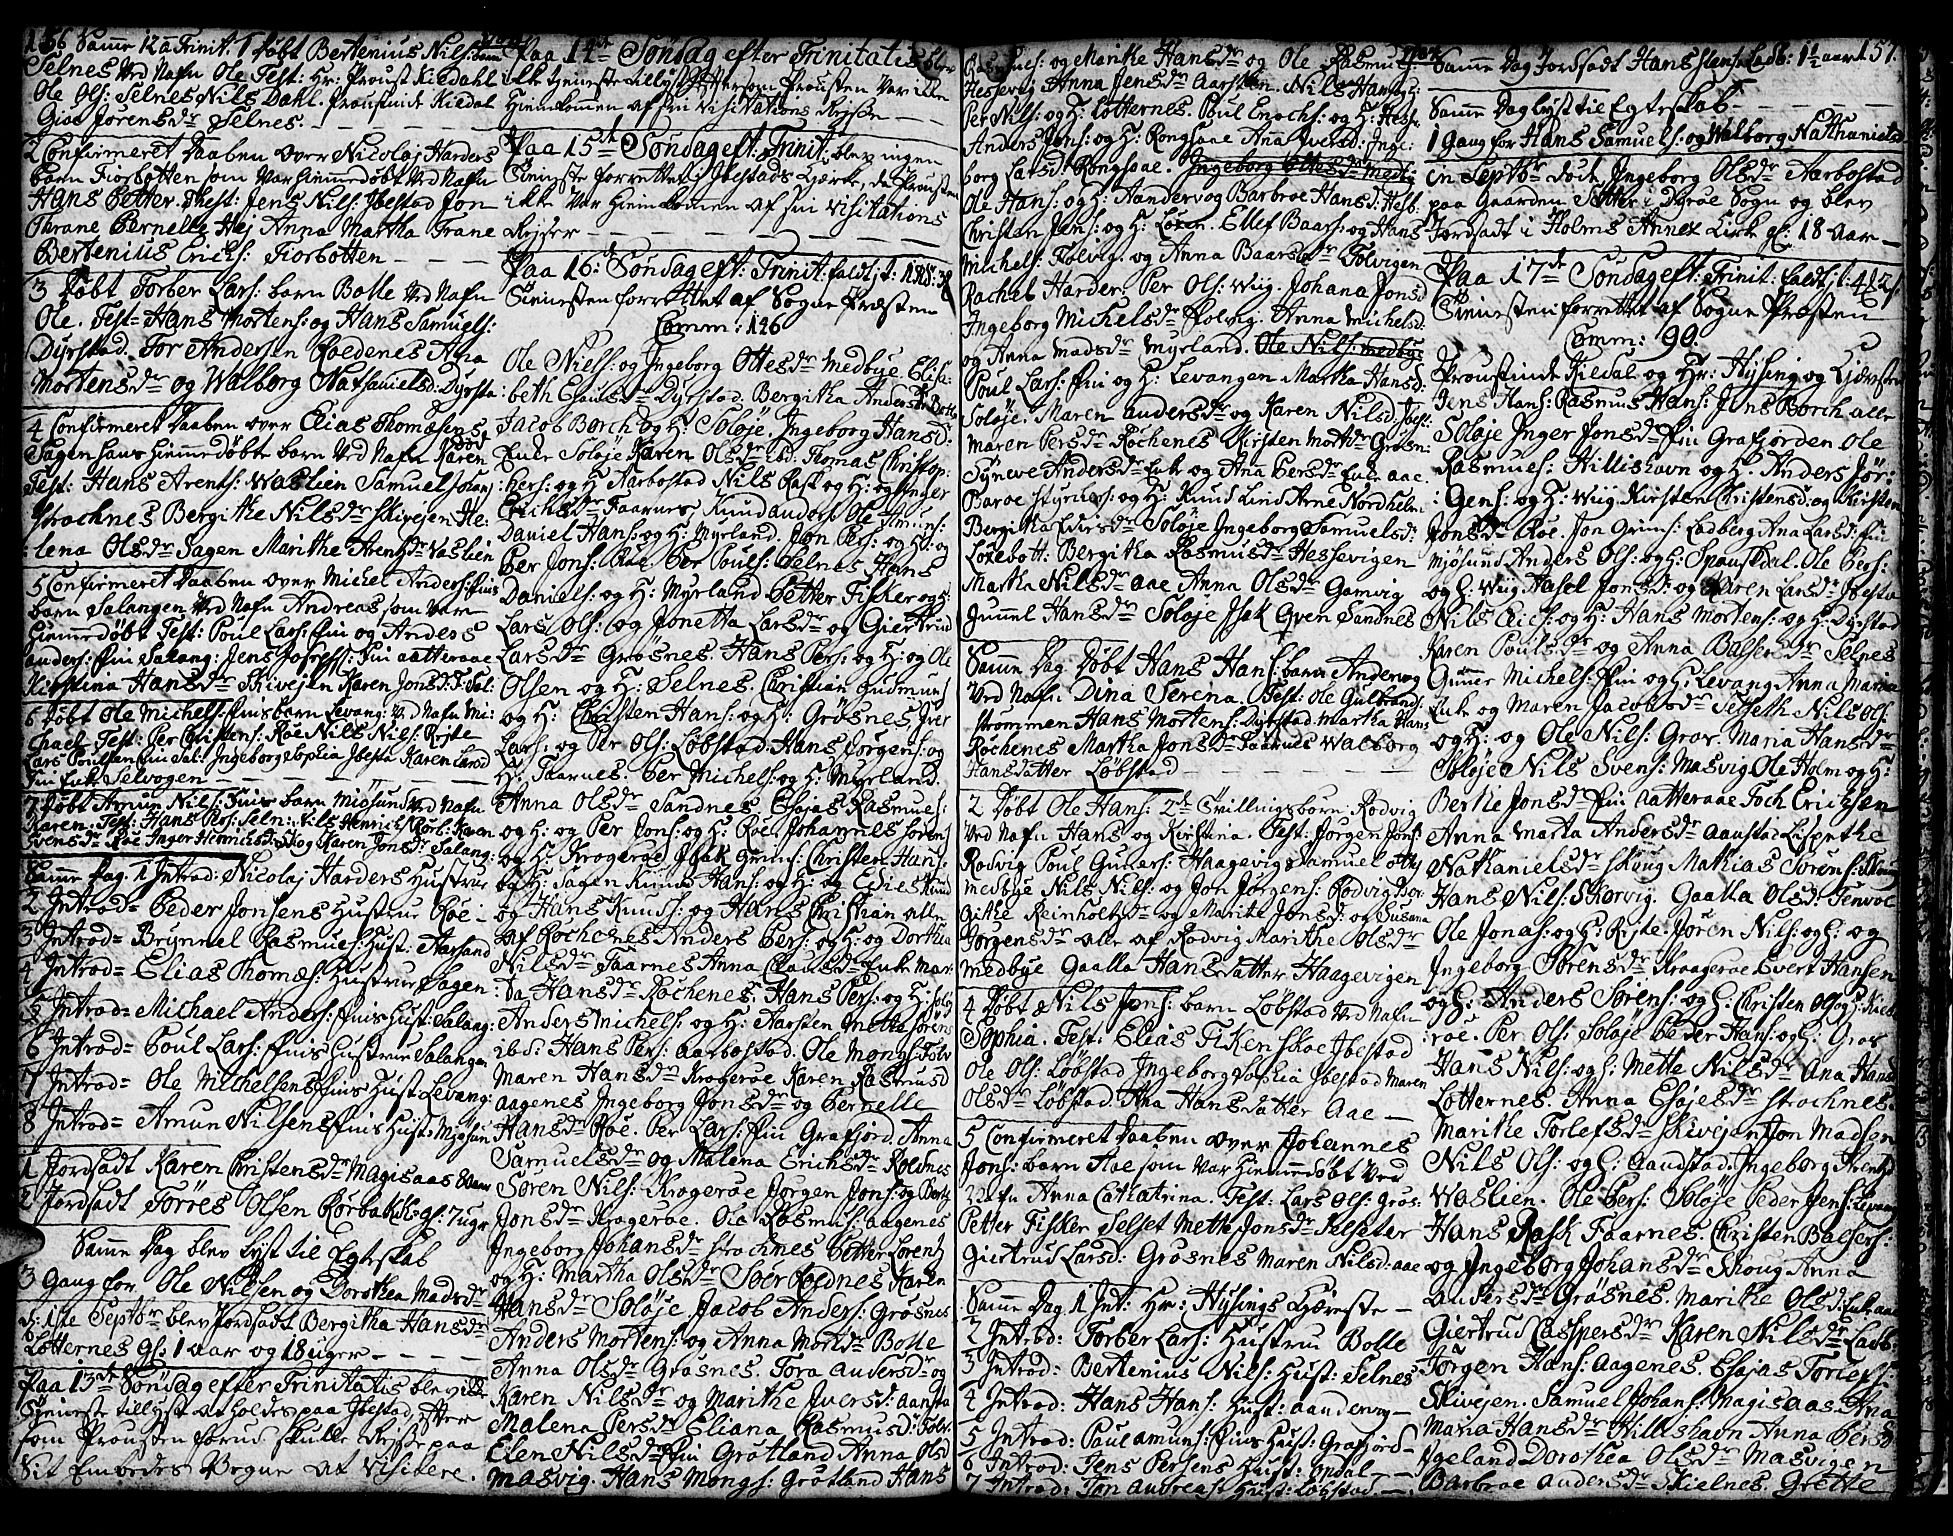 156 Samme 12 a Trinit. 1 Døbt Bertenius Nils: barn
Selnes ved Nafn Ole Test: Hr: Proust Kiedahl
Ole Ols: Selnes Nils Dahl. Proustinde Kiedal
Giøe Jørensdr Selnes.
2 Confirmeret Daaben over Nicolaj Harders
barn Fiorbotten som var hiemmedøbt ved Nafn
Hans Petter. Thest: Jens Nils: Ibestad Jon
Thrane Pernelle Hej Anna Martha Trane
Bertenius Erichs: Fiorbotten
3 Døbt Torber Lars: barn Bolle ved Nafn
Ole. Test= Hans Mortens: og Hans Samuels:
Dyrstad. Tor Andersen Roedenes Ana
Mortensdr og Walborg Nathanielsd: Dyrsta
4 Confirmeret Daaben over Elias Thomæsens
Sagen hans hiemmedøbte barn ved Nafn Karen
Test: Hans Arents: Waslien Samuel Johans
Strochnes Bergithe Nilsdr Skivejen He:
:lena Olsdr Sagen Marithe Arentzdr Vaslien
5 Confirmeret Daaben over Michel Anders: fins
barn Salangen ved Nafn Andreas som var
hiemmedøbt Test: Poul Lars: fin og Anders
anders: fin Salang: Jens Josephs: Fin aatteraae
Kirstina Hansdr Skivejen Karen Jonsd: F: Sal:
6 Døbt Ole Michels: fins barn Levang: ved Nafn Mi:
chael. Test: Per Christens: Røe Nils Nils: Røjte
Lars Poulsen fin Sal: Ingeborg Sophia Ibesta Karen Larsd
Fin Enke Selvogen
7 Døbt Amun Nils: Fins barn Miøsund ved Nafn
Karen. Test: Hans Pers: Seln: Nils Henrichs Rørb: Karen
Svensdr Røe Inger Henrichsd: Skog Karen Jonsdr Salang:
Samme Dag. 1 Introd: Nicolaj Harders Hustrue
2 Introd= Peder Jonsens Hustrue Røe
3 Introd= Brynnel Rasmues: Hust: Aarsand
4 Introd= Elias Thomæs: Hustrue Sagen
5 Introd= Michael Anders: fins Hust: Salang:
6 Introd= Poul Lars: fins Hustrue Salangen
7 Introd= Ole Michelsens fins Hust: Levang:
8 Introd= Amun Nilsens fins Hust: Miøsun
1 Jordfadt Karen Christensdr Magisaas
2 Jordfadt Torres Olsen Rørbak gl: 7 uger
Samme Dag blev lyst til Egteskab
3 Gang for Ole Nilsen og Dorothea Madsdr
d: 1ste Septbr blev Jordfadt Bergitha Hansdr
Lotternes gl: 1 aar og 18 uger
Paa 13de Søndag efter Trinitatis blev ikke
Tieniste tillyst at holdes paa Ibestad, efter
som Prousten forud skulle Rejse paa
Sit Embedes Vegne at Visitere.
Paa 14de Søndag efter Trinitatis blev
ikke Tieniste tillyst eftersom Prousten var ikke
Hiemkommen af sin Visitations Rejse
Paa 15de Søndag eft: Trinit: blev ingen
Tieniste forrettet i Ibestads Kierke, da Prousten
ikke var Hiemkommen af sin Visitations
Rejser
Paa 16: Søndag eft: Trinit: faldt j t: 18 S: 38
Tienesten forrettet af Sogne Præsten
Comm: 126
Ole Niels: og Ingeborg Ottesdr Medbye Elisa:
beth Esaiæsdr Dyrstad. Bergitha Andersdr Botte
Jacob Borch og H: Soløje. Ingeborg Hansd:
Enke Soløje Karen Olsdr ibd: Thomas Christop:
:hers: og H Aarbostad Nils Rast og H: og Inger
Erichsdr Faarnes Knud anders Ole Amuns:
Daniel Hans: og H: Myrland. Jon Pers: og H: og
Per Jons: Aae. Per Pouls: Selnes Hans
Daniels: og H: Myrland Petter Fisker og H:
Lars Ols: og Jonetta Larsdr og Giertrud
Larsdr Grøsnes. Hans Pers: og H: og Ole
Olsen og H: Selnes. Christian Gudmuns
og H: Christen Hans: og H: Grøsnes, Iver
Lars: og Per Ols: Løbstad. Hans Jørgens: og
H: Faarnes. Per Michels: og H: Myrland.
Anna Olsdr Sandnes Esaias Rasmues:
og H: og Per Jons: og H: Røe. Johannes Sørens
og H: Krogerøe Isak Gunns: Christen Hans:
og H: Sagen Knud Hans: og H: og Edies Knud
og Hans Knuds: og Hans Christian alle
af Rochenes Anders Pers: og H: og Dorthea
Nilsdr Faarnes Anna Clausdr Enke Mari:
:ta Hansdr Rochenes: Hans Pers: og H: Soløj
Anders Michels: og H: Aarsten Mette Sørens
ibd: Hans Pers: Aarbostad. Ole Mongs: Folv
Maren Hansdr Krogerøe Karen Rasmusd
aagenes Ingeborg Jonsdr og Pernelle
Hansdr Røe. Per Lars: fin Grafjord. Anna
Samuelsdr og Malena Erichsdr Roednes
Søren Nils: Krogerøe Jørgen Jons: og Berte
Jonsdr Krogerøe. Ole Rasmus: aagenes
Ingeborg Johansdr Strochnes Petter Lorentz
og H: Martha Olsdr Søer Roednes Karen
Hansdr Soløje Jacob Anders: Grøsnes
Anders Mortens: og Anna Mortdr Bolle
Anna Olsdr Grøsnes. Tora andersdr og
Karen Nilsdr og Marithe Iversd: aansta
Malena Persdr Eliana Rasmusd: Folv:
Elen Nilsdr fin Grøtland Anna Olsd
Masvig. Hans Mongs: Grøtland Hans
Rasmues: og Marithe Hansdr og Ole Rasmus
Hessevig Anna Jensdr Aarsten. Nils Hans: og H:
Per Nils: og H: Lotternes. Poul Enochs: og H: Hesse
Anders Jons: og H: Rongsaae Ana Iversd: Inge:
borg Larsd: Rongsaae. Ingeborg Ottesdr Medby
Ole Hans: og H: Aandervog Barbroe Hansd: Hesb.
Christen Jens: og H: Loxen. Ellef Baars: og Hans
Michels: Folvig. og Anna Baarsdr Folvigen
Rachel Harder. Per Ols: Wiig. Johana Jonsd
Ingeborg Michelsdr Folvig. Anna Michelsd:
og Anna Madsdr Myrland. Ole Nils: Medbye
Poul Lars: fin og H: Levangen Martha Hansd:
Soløje. Maren andersdr og Karen Nilsd: Ibest:
Maren Persdr Rochenes Kirsten Morthr Grøsn:
Synneve Andersdr Enke og Ana Persdr Enke aae.
Baroe Styrkers: og H: Knud Lind Arne Nordhelm
Bergitha Edisdr Soløje Ingeborg Samuelsd:
Loxebott: Bergitha Rasmusdr Hessevigen
Martha Nilsdr Aae Anna Olsdr Gamvig
Jumel Hansdr Soløje Isak Qven Sandnes
Samme Dag Døbt Hans Hans: barn Andervog
ved Nafn Dina Serena. Test: Ole Gulbrands:
strommen Hans Mortens: Dyrstad Martha Hans
Rochenes Martha Jonsdr Faarnes Walborg
Hansdatter Løbstad
2 Døbt Ole Hans: 2de Tvillingsbørn: Rodvig
ved Nafn Hans og Kirstina. Test: Jørgen Jons:
Rodvig Poul Guners: Haagevig Samuel Ottes
Medbye Nils Nils: og Jon Jørgens: Rodvig Ber
githe Reinholtzdr og Marite Jonsd: og Susana
Jørgensdr alle af Rodvig Marithe Olsdr
Medbye Gaalla Hans datter Haagevigen
4 Døbt Nils Jons: barn Løbstad ved Nafn
Sophia. Test: Elias Fikenskoe Ibestad
Ole Ols: Løbstad Ingeborg Sophia Ibestad Maren
Olsdr Løbstad. Ana Hansdatter Aae
5 Confirmeret Daaben over Johannes
Jons: barn Aae som var hiemmedøbt ved
Nafn Anna Cathatrina. Test: Lars Ols: Grøs:
Petter Fisker Selset Mette Jonsdr Selseter
Giertrud Larsd: Grøsnes Maren Nilsd: aae
Samme Dag 1 Int: Hr: Hysings Kiæreste
2 Introd: Torber Lars: Hustru Bolle
3 Introd: Bertenius Nils: Hust: Selnes
4 Introd: Hans Hans: Hust: aanderv
5 Introd: Paul Amuns: fins Hust: Grafjord
6 Introd: Jens Persens Hust: Opdal
7 Introd: Jon Andreas: Hust: Løbstad
Samme Dag Jordfadt Hans Stens: Ladb: 1½ aar 157.
Samme Dag lyst til Egteskab
1 Gang for Hans Samuels: og Walborg Nathanielsd
in Septbr døde Ingeborg Olsdr Aarbostad
paa Gaarden Setter i Dyrøe Sogn og blev
Jordfadt i Holms Annex Kirke gl: 18 Aar
Paa 17de Søndag eft: Trinit: faldt j t: 4
Tienesten forrettet af Sogne Præsten
Comm: 90.
Proustinde Kiedal og Hr: Hysing og Kiæreste
Jens Hans: Rasmus Hans: Jens Borch alle
Soløje Inger Jonsdr fin Grafjorden Ole
Rasmues: Hilleshavn og H: Anders Jør:
:Gens: og H: Wiig Kirsten Christensd: og Kirsten
Jonsdr Røe. Jon Grims: Ladberg Ana Larsd: fin
Miøsund Anders Ols: og H: Spansdal. Ole Pers:
og H: Wiig Hasel Jonsd: og Karen Larsdr Ibesta
Nils Eies: og H: Hans Mortens: og H: Dyrstad
Karen Poulsdr og Anna Balsersdr Selnes
Gunner Michels: fin og H: Levang Anna Maria
Enke og Maren Jacobsdr Selseth Nils Ols:
og H: og Ole Nils: Grov. Maria Hansdr
Soløje Nils Svens: Masvig Ole Holm og H:
Berthe Jonsdr fin aatteraae Toch Erichsen
Anna Marta Andersdr aansta: Lisbethe
Nathanielsdr Skoug Mathias Sørens: Skoug
Hans Nils: Skorvig. Gaalla Olsd: Tenvol
Ole Jonas: og H: Røjte. Jøren Nils: og H: og
Ingeborg Sørensdr Kraagerøe Evert Hansen
og H: Anders Sørens: og H: Christen Ols og H: Kra
:røe. Per Ols: Soløje Peder Hans: og H: Grøs
Hans Nils: og H: Mette Nilsdr Ana Hans
Lotternes. Anna Esøjesdr Strochnes.
Marithe Torlefsdr Skivejen Jon Madsen
Nils Ols: og H: Aandstad. Ingeborg Arentzd
Waslien. Ole Pers: Soløje Peder Jens: Levang
Hans Rask Faarnes. Christen Balsers:
og Ingeborg Johansdr Skoug Anna
andersdr Grøsnes. Marithe Olsd: Enke aae
Giertrud Caspersdr Karen Nilsdr Ladb:
Jørgen Hans: Aagenes. Esajas Torlefs:
Skivejen. Samuel Johans: Magisaas Ana
Maria Hansdr Hilleshavn Anna Persd
Ageland Dorothea Olsdr Masvigen
Barbroe andersdr Skielnes. Grette